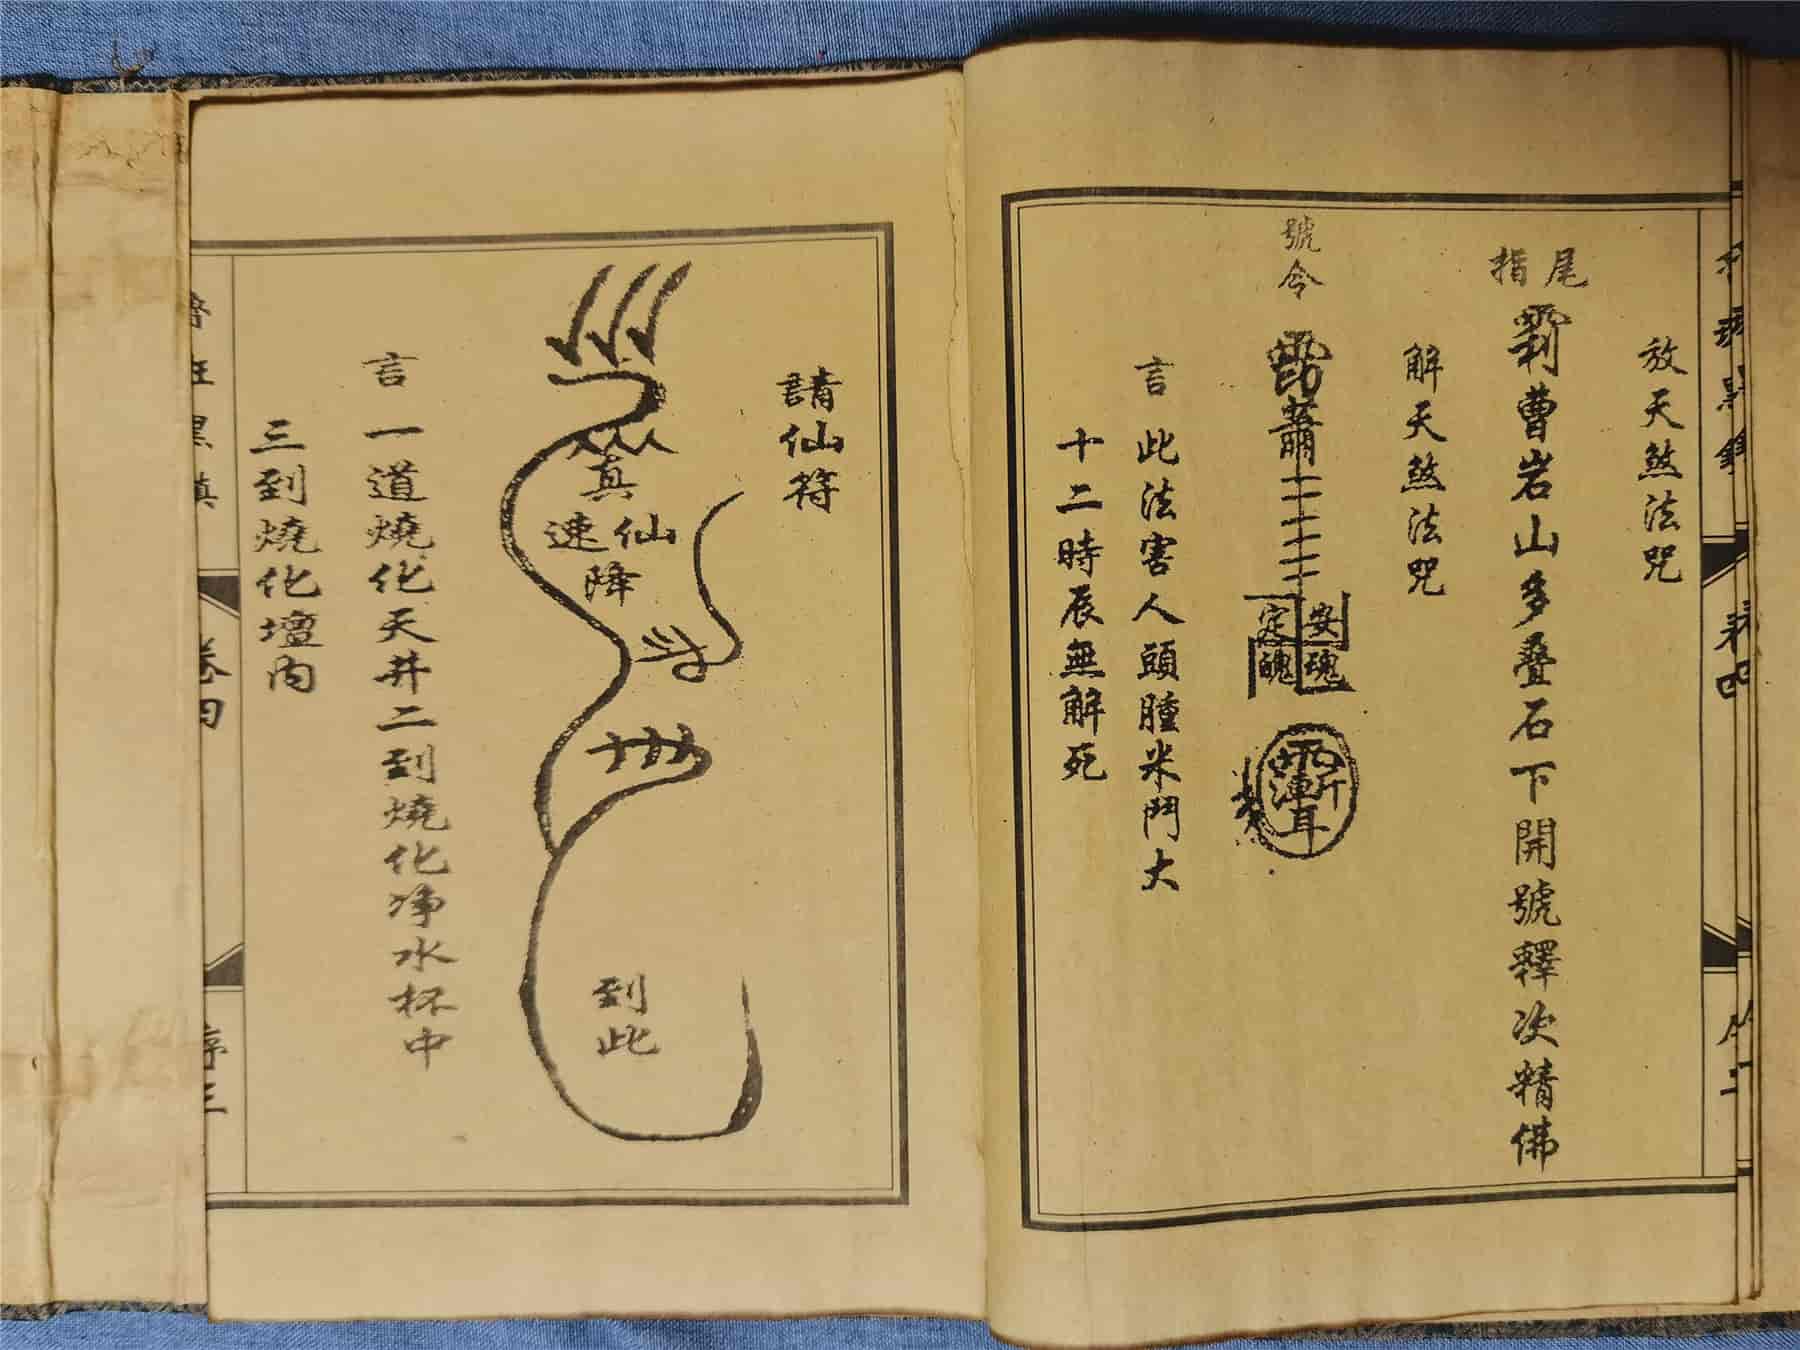 放天煞法咒
尾指
曹岩山多叠石下開號釋次精佛
解天煞法咒
號令
安魂
定魄
斬
言 此法害人頭腫米鬥大
十二時辰無解死
請仙符
真仙速降
到此
言 一道燒化天井二到燒化净水杯中
三到燒化壇内
卷四